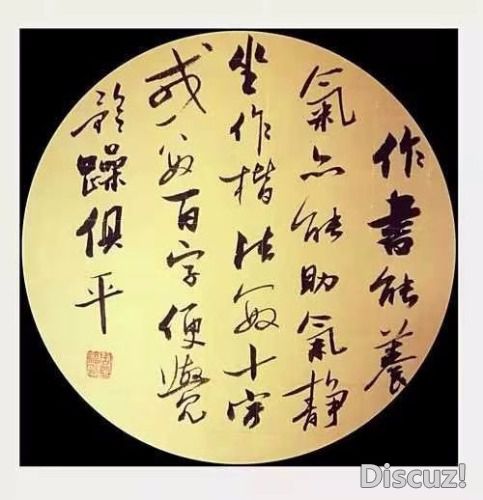 作書能養
氣亦能助氣静
坐作楷法數十字
或數百字便覺
矜躁俱平
Discuz!